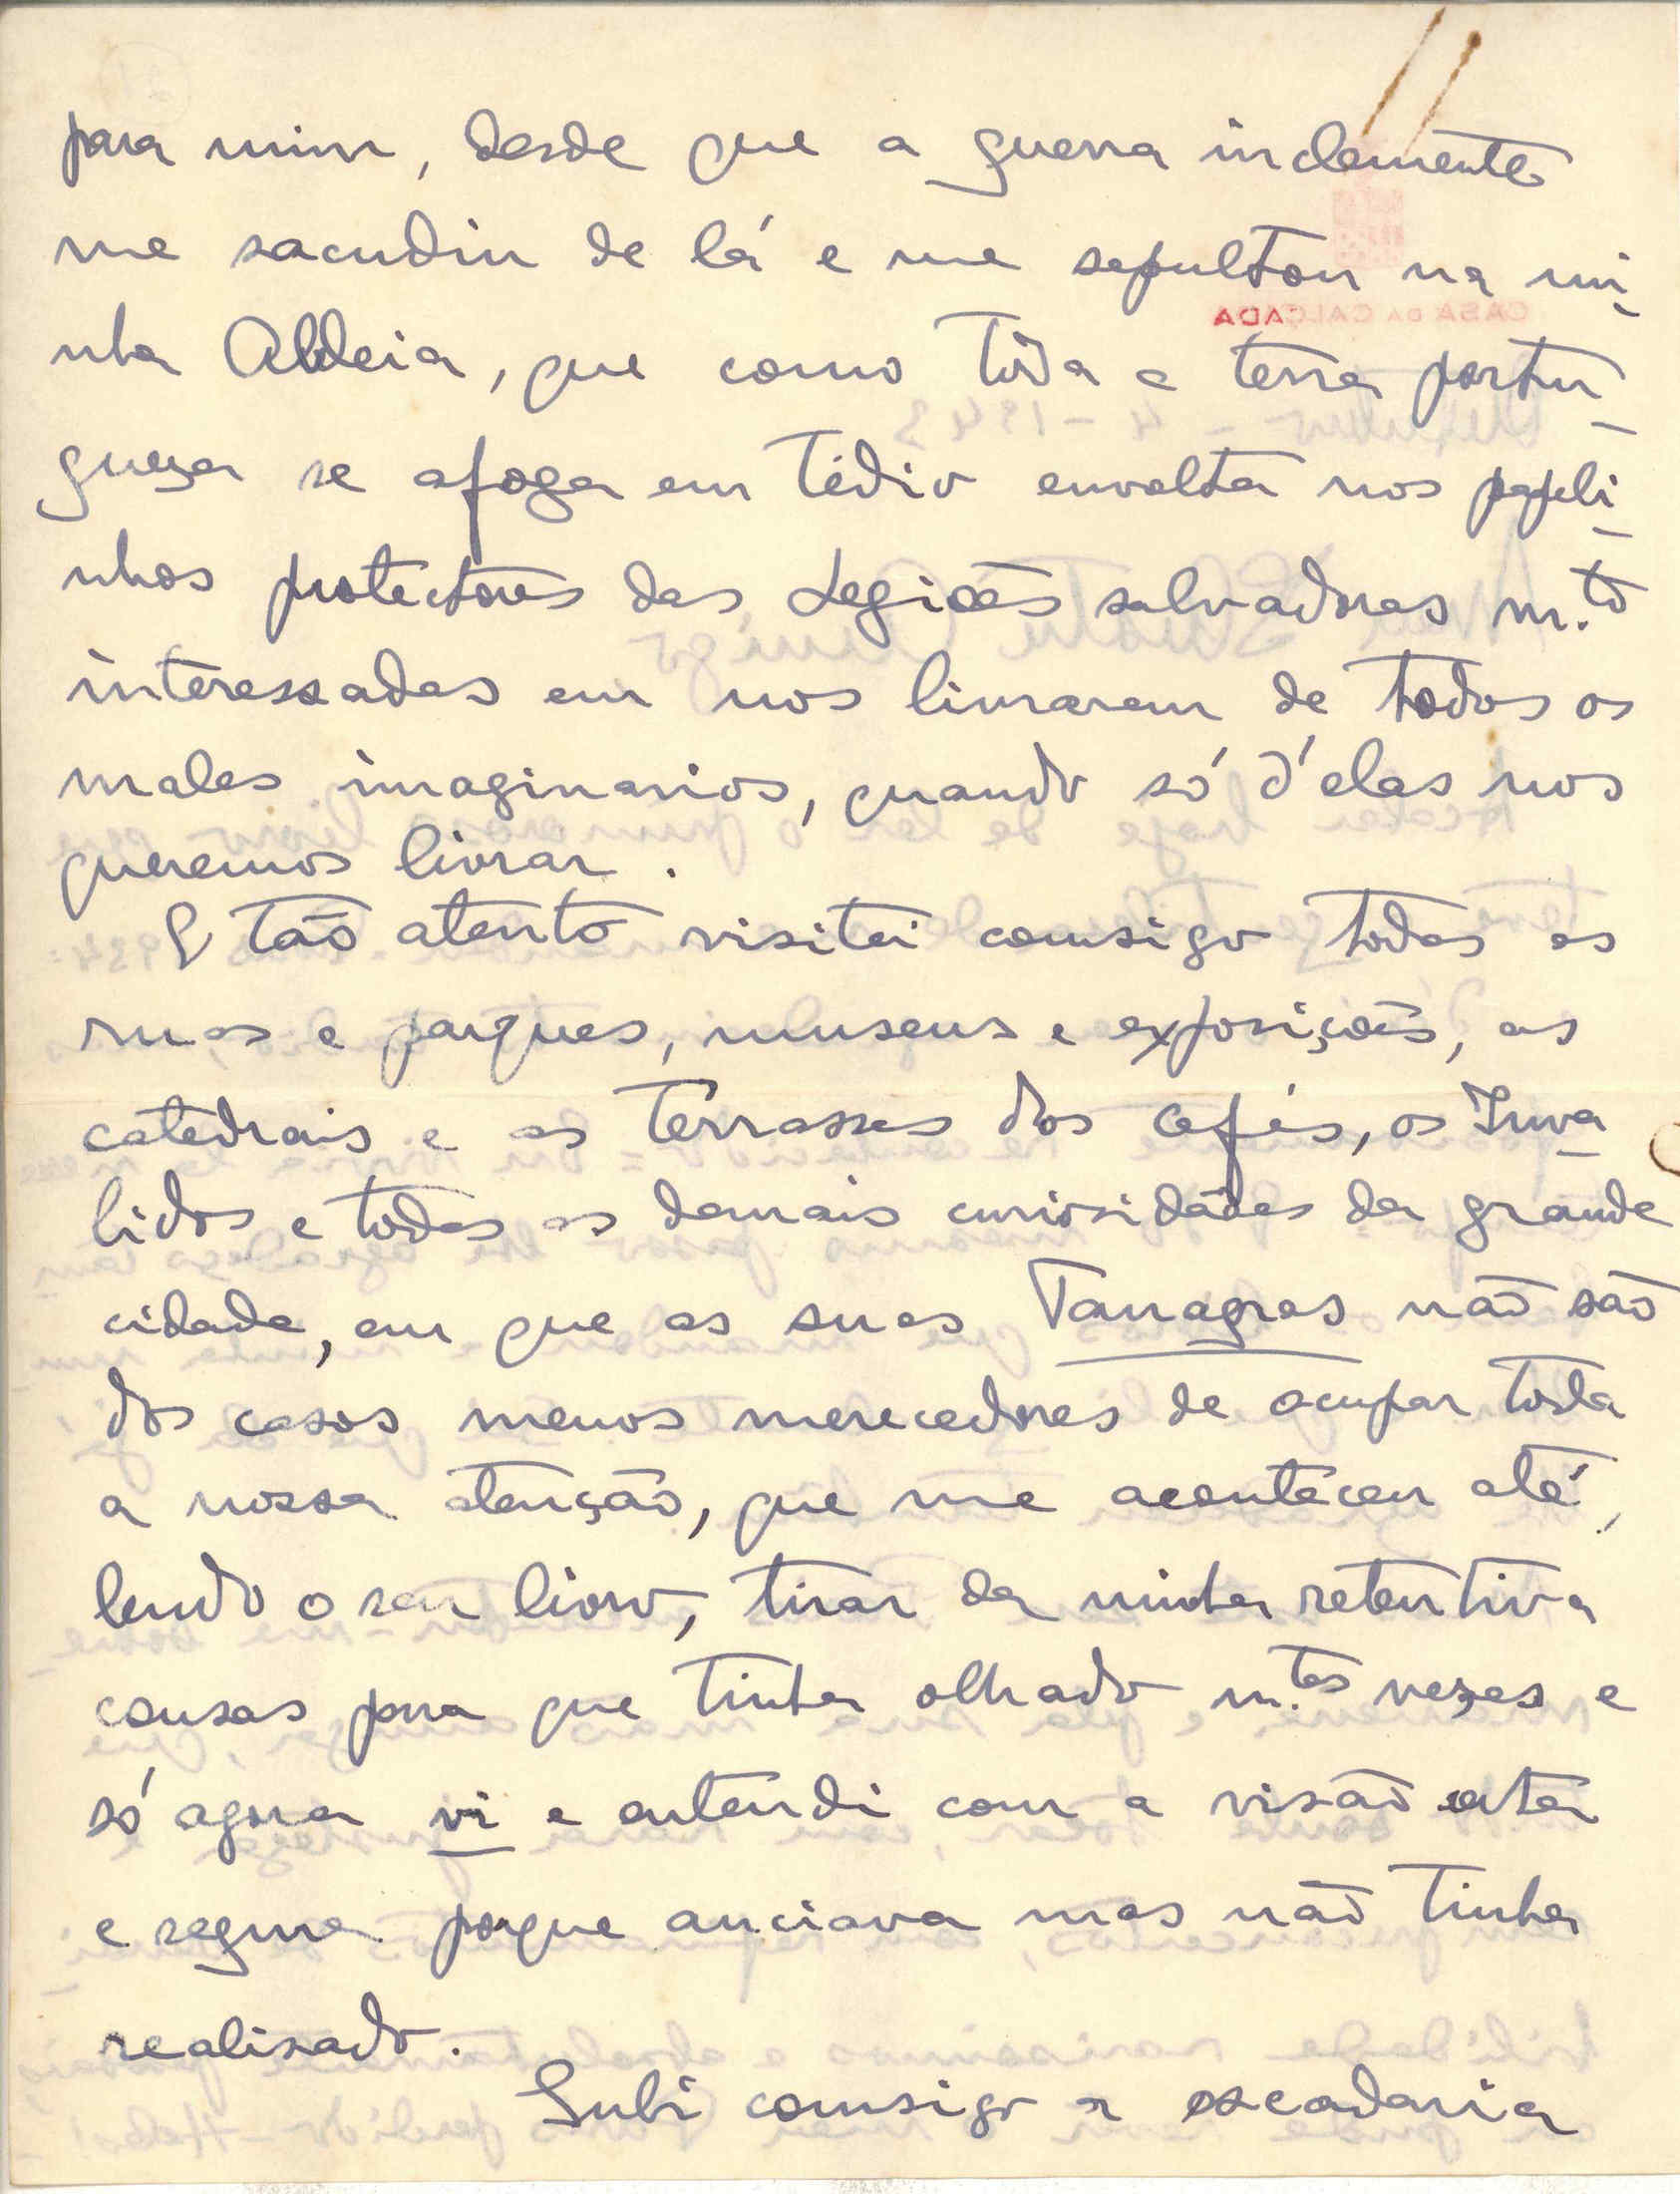 para mim, desde que a guerra inclemente
me sacudiu de lá e me sepultou na mi-
nha Aldeia, que como tôda a terra portu-
gueza se afoga em tédio envolta nos papeli-
nhos protectores das Legiões salvadoras m.to
interessadas em nos livrarem de todos os
males imaginarios, quando só d'elas nos
queremos livrar.
E tão atento visitei comsigo todas as
ruas e parques, museus e exposições, as
catedrais e as terrasses dos cafés, os Inva-
lidos e todas as demais curiosidades da grande
cidade, em que as suas Tanagras não são
dos casos menos merecedores de ocupar toda
a nossa atenção, que me aconteceu até,
lendo o seu livro, tirar da minha retentiva
cousas para que tinha olhado m.tas vezes e
só agora vi e entendi com a visão certa
e segura porque anciava mas não tinha
realisado.
Subi comsigo a escadaria
CASA DA CALÇADA